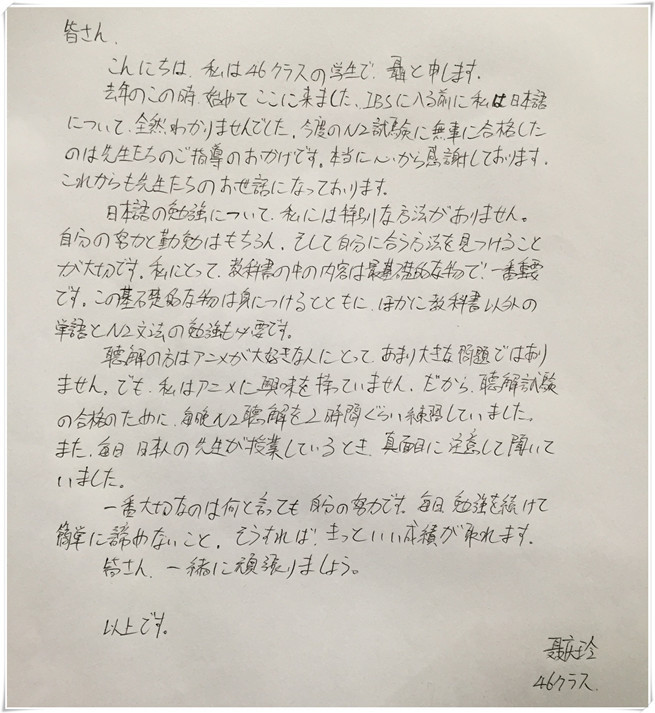 皆さん、
こんにちは、私は46クラスの学生で、聶と申します。
去年のこの時、始めてここに来ました、IBSに入る前に私は日本語
について、全然わかりませんでした。今度のN2試験に無事に合格した
のは先生たちのご指導のおかげです。本当に心から感謝しております。
これからも先生たちのお世話になっております。
日本語の勉強について、私には特別な方法がありません。
自分の努力と勤勉はもちろん、そして自分に合う方法を見つけること
が大切です。私にとって、教科書の中の内容は最基礎的な物で、一番重要
です。この基礎的な物は身につけるとともに、ほかに教科書以外の
単語とN2文法の勉強も必要です。
聴解の方はアニメが大好きな人にとって、あまり大きな問題ではあり
ません。でも、私はアニメに興味を持っていません、だから、聴解試験
の合格のために、毎晩N2聴解を2時間ぐらい練習していました。
また、毎日日本人の先生が授業しているとき、真面目に注意して聞いて
いました。
一番大切なのは何と言っても自分の努力です。毎日勉強を続けて
簡単に諦めないこと、そうすれば、きっといい成績が取れます。
皆さん、一緒に頑張りましょう。
以上です。
聶庆玲
46クラス